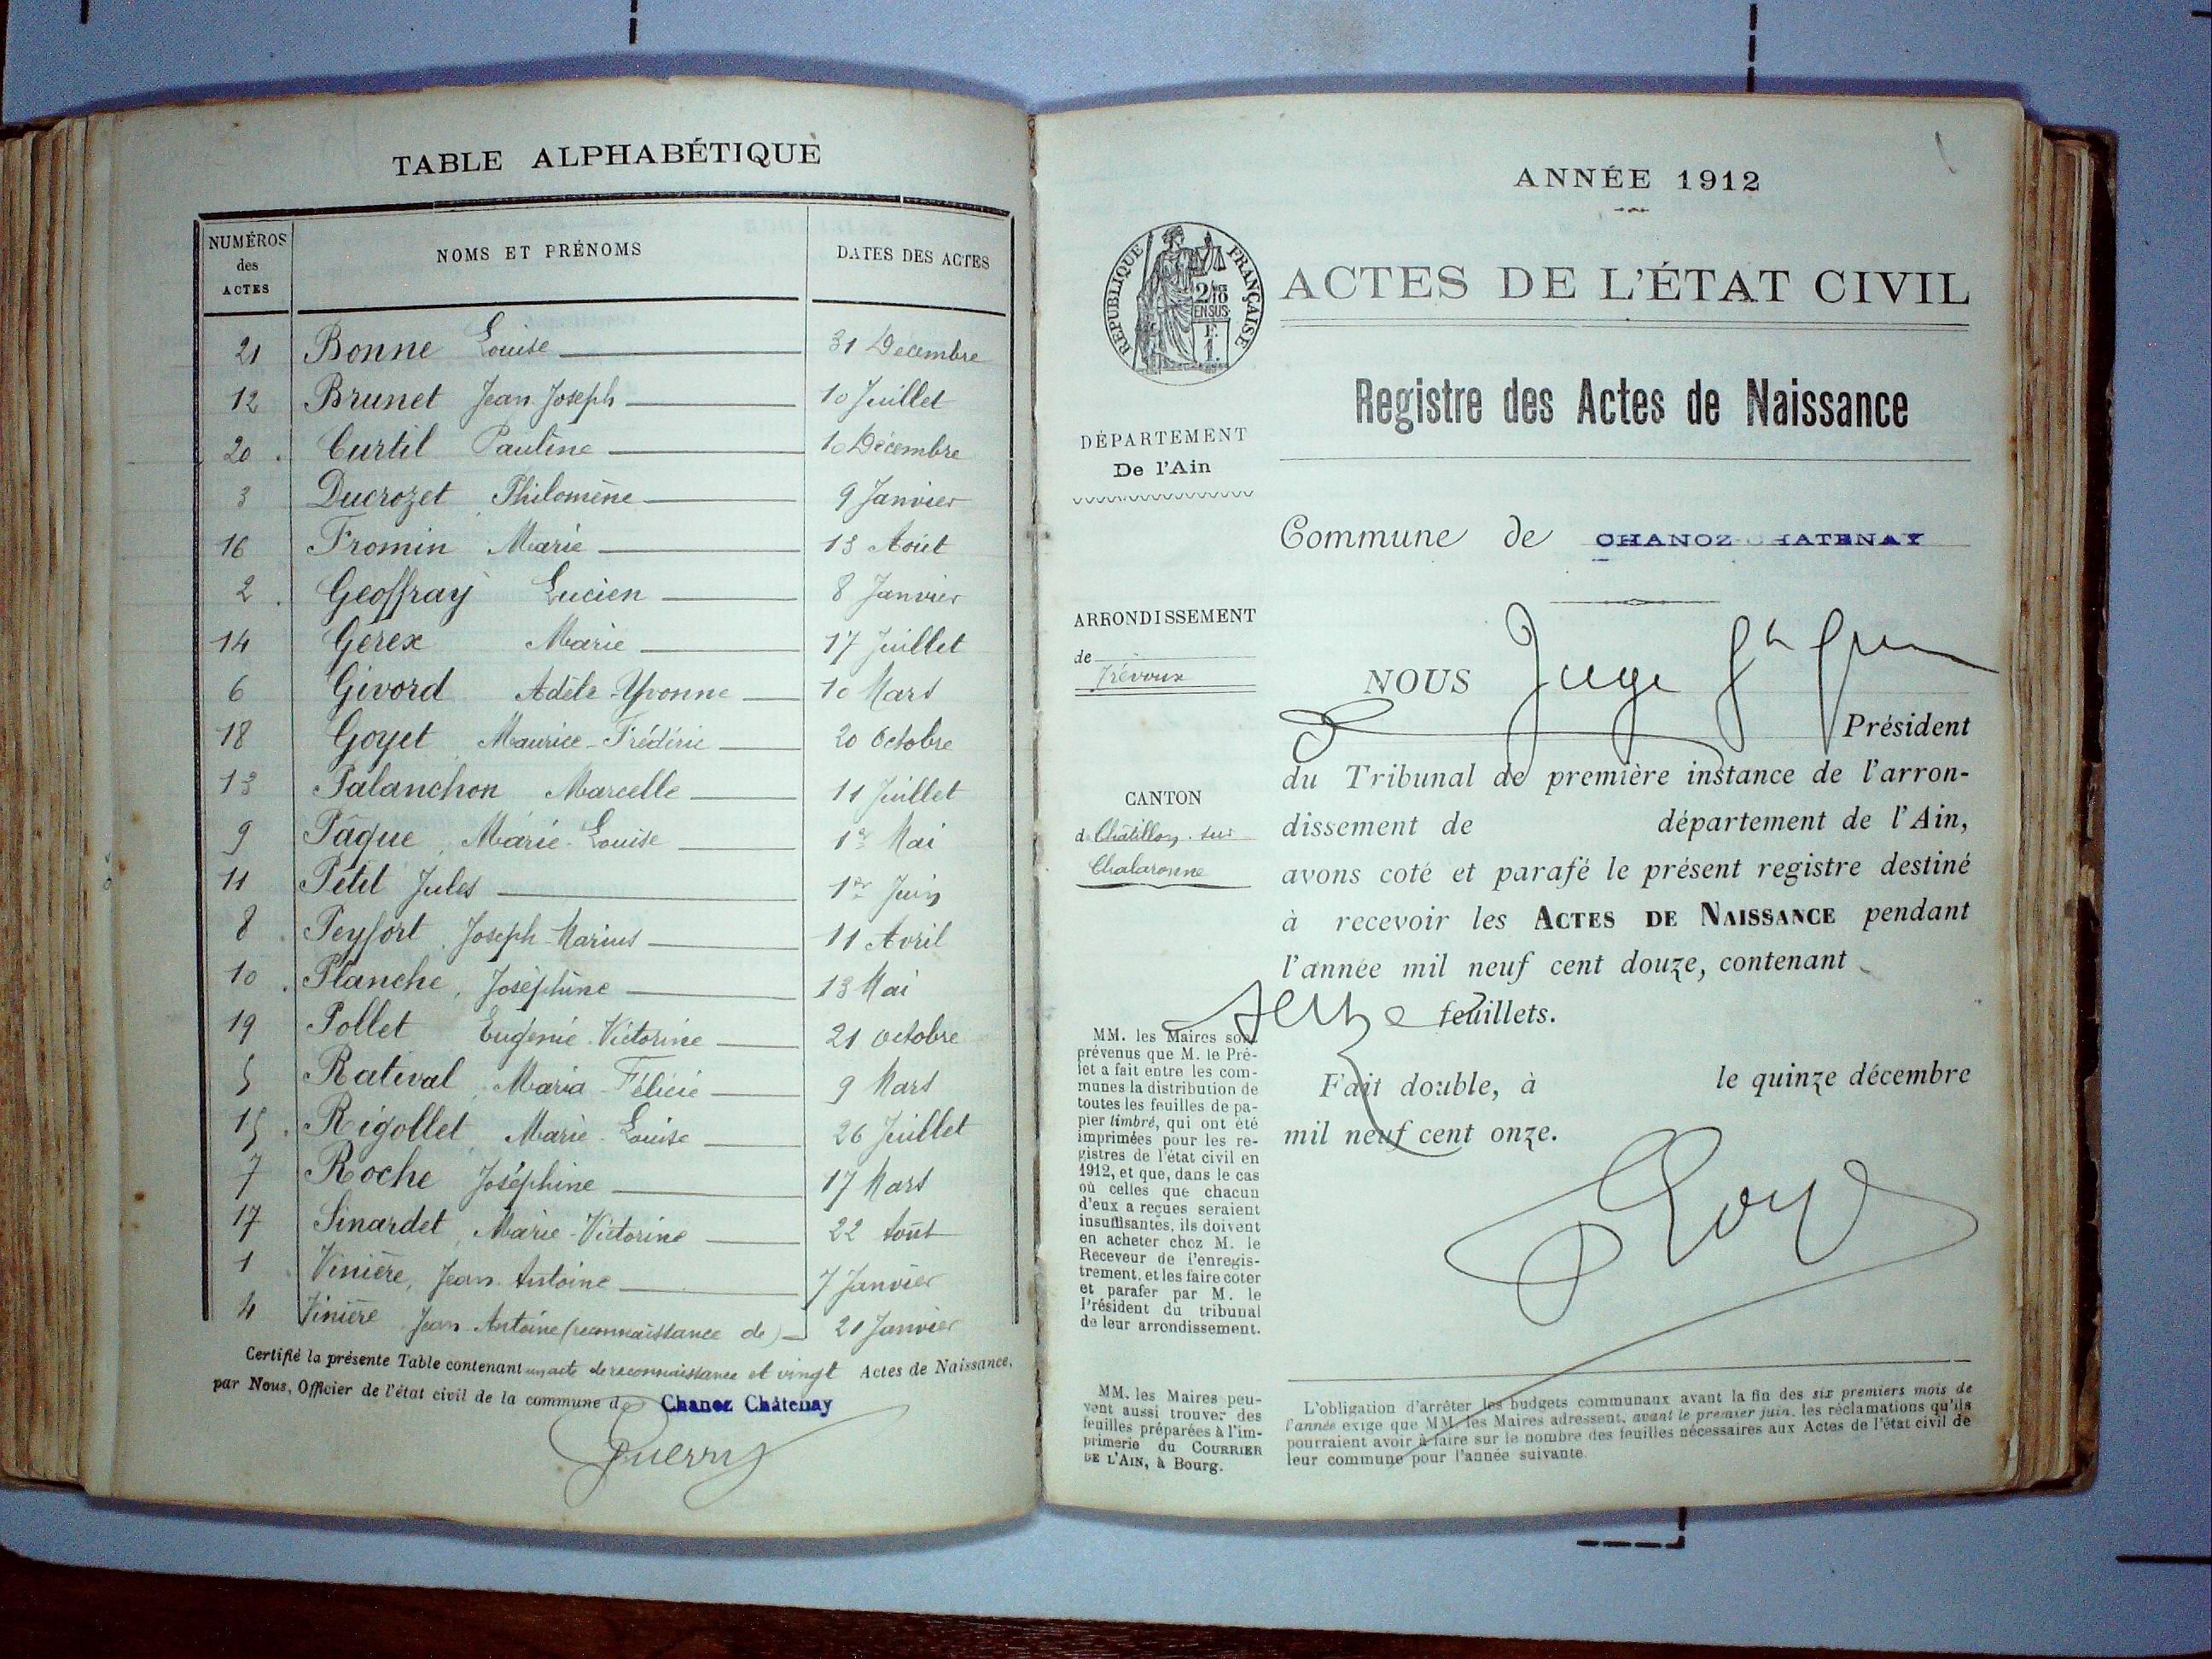 TABLE ALPHABÉTIQUE
NUMÉROS
des
ACTES
NOMS ET PRÉNOMS
DATES DES ACTES
21 Bonne Louise 31 Decembre
12 Brunet Jean Joseph 10 Juillet
20 Curtil Pauline 10 Décembre
3 Ducrozet Philomène 9 Janvier
16 Fromin Marie 13 Août
2 Geoffray Lucien 8 Janvier
14 Gerex Marie 17 Juillet
6 Givord Adèle-Yvonne 10 Mars
18 Goyet Maurice-Frédéric 20 Octobre
13 Palanchon Marcelle 11 Juillet
9 Pâque, Marie-Louise 1er Mai
11 Petit Jules 1er Juin
8 Peyfort, Joseph-Marius 11 Avril
10 Planche, Joséphine 13 Mai
19 Pollet Eugénie-Victorine 21 Octobre
5 Ratival, Maria-Félicie 9 Mars
15 Rigollet, Marie-Louise 26 Juillet
7 Roche Joséphine 17 Mars
17 Sinardet, Marie-Victorine 22 Août
1 Vinière, Jean-Antoine 7 Janvier
4 Vinière Jean-Antoine (reconnaissance de) 21 Janvier
Certifié la présente Table contenant un acte de reconnaissance et vingt Actes de Naissance,
par Nous, Officier de l'état civil de la commune de Chanoz Châtenay
ANNÉE 1912
RÉPUBLIQUE FRANÇAISE
2/10
EN SUS
F.
1.
ACTES DE L'ÉTAT CIVIL
Registre des Actes de Naissance
DÉPARTEMENT
De l'Ain
Commune de CHANOZ-CHATENAY
ARRONDISSEMENT
de
Trévoux
NOUS Juge
Président
du Tribunal de première instance de l'arron-
dissement de département de l'Ain,
avons coté et parafé le présent registre destiné
à recevoir les ACTES DE NAISSANCE pendant
l'année mil neuf cent douze, contenant
seize feuillets.
Fait double, à le quinze décembre
mil neuf cent onze.
CANTON
de Châtillon-sur-
Chalaronne
MM. les Maires sont
prévenus que M. le Pré-
fet a fait entre les com-
munes la distribution de
toutes les feuilles de pa-
pier timbré, qui ont été
imprimées pour les re-
gistres de l'état civil en
1912, et que, dans le cas
où celles que chacun
d'eux a reçues seraient
insuffisantes, ils doivent
en acheter chez M. le
Receveur de l'enregis-
trement, et les faire coter
et parafer par M. le
Président du tribunal
de leur arrondissement.
MM. les Maires peu-
vent aussi trouver des
feuilles préparées à l'im-
primerie du COURRIER
DE L'AIN, à Bourg.
L'obligation d'arrêter les budgets communaux avant la fin des six premiers mois de
l'année exige que MM. les Maires adressent, avant le premier juin, les réclamations qu'ils
pourraient avoir à faire sur le nombre des feuilles nécessaires aux Actes de l'état civil de
leur commune pour l'année suivante.